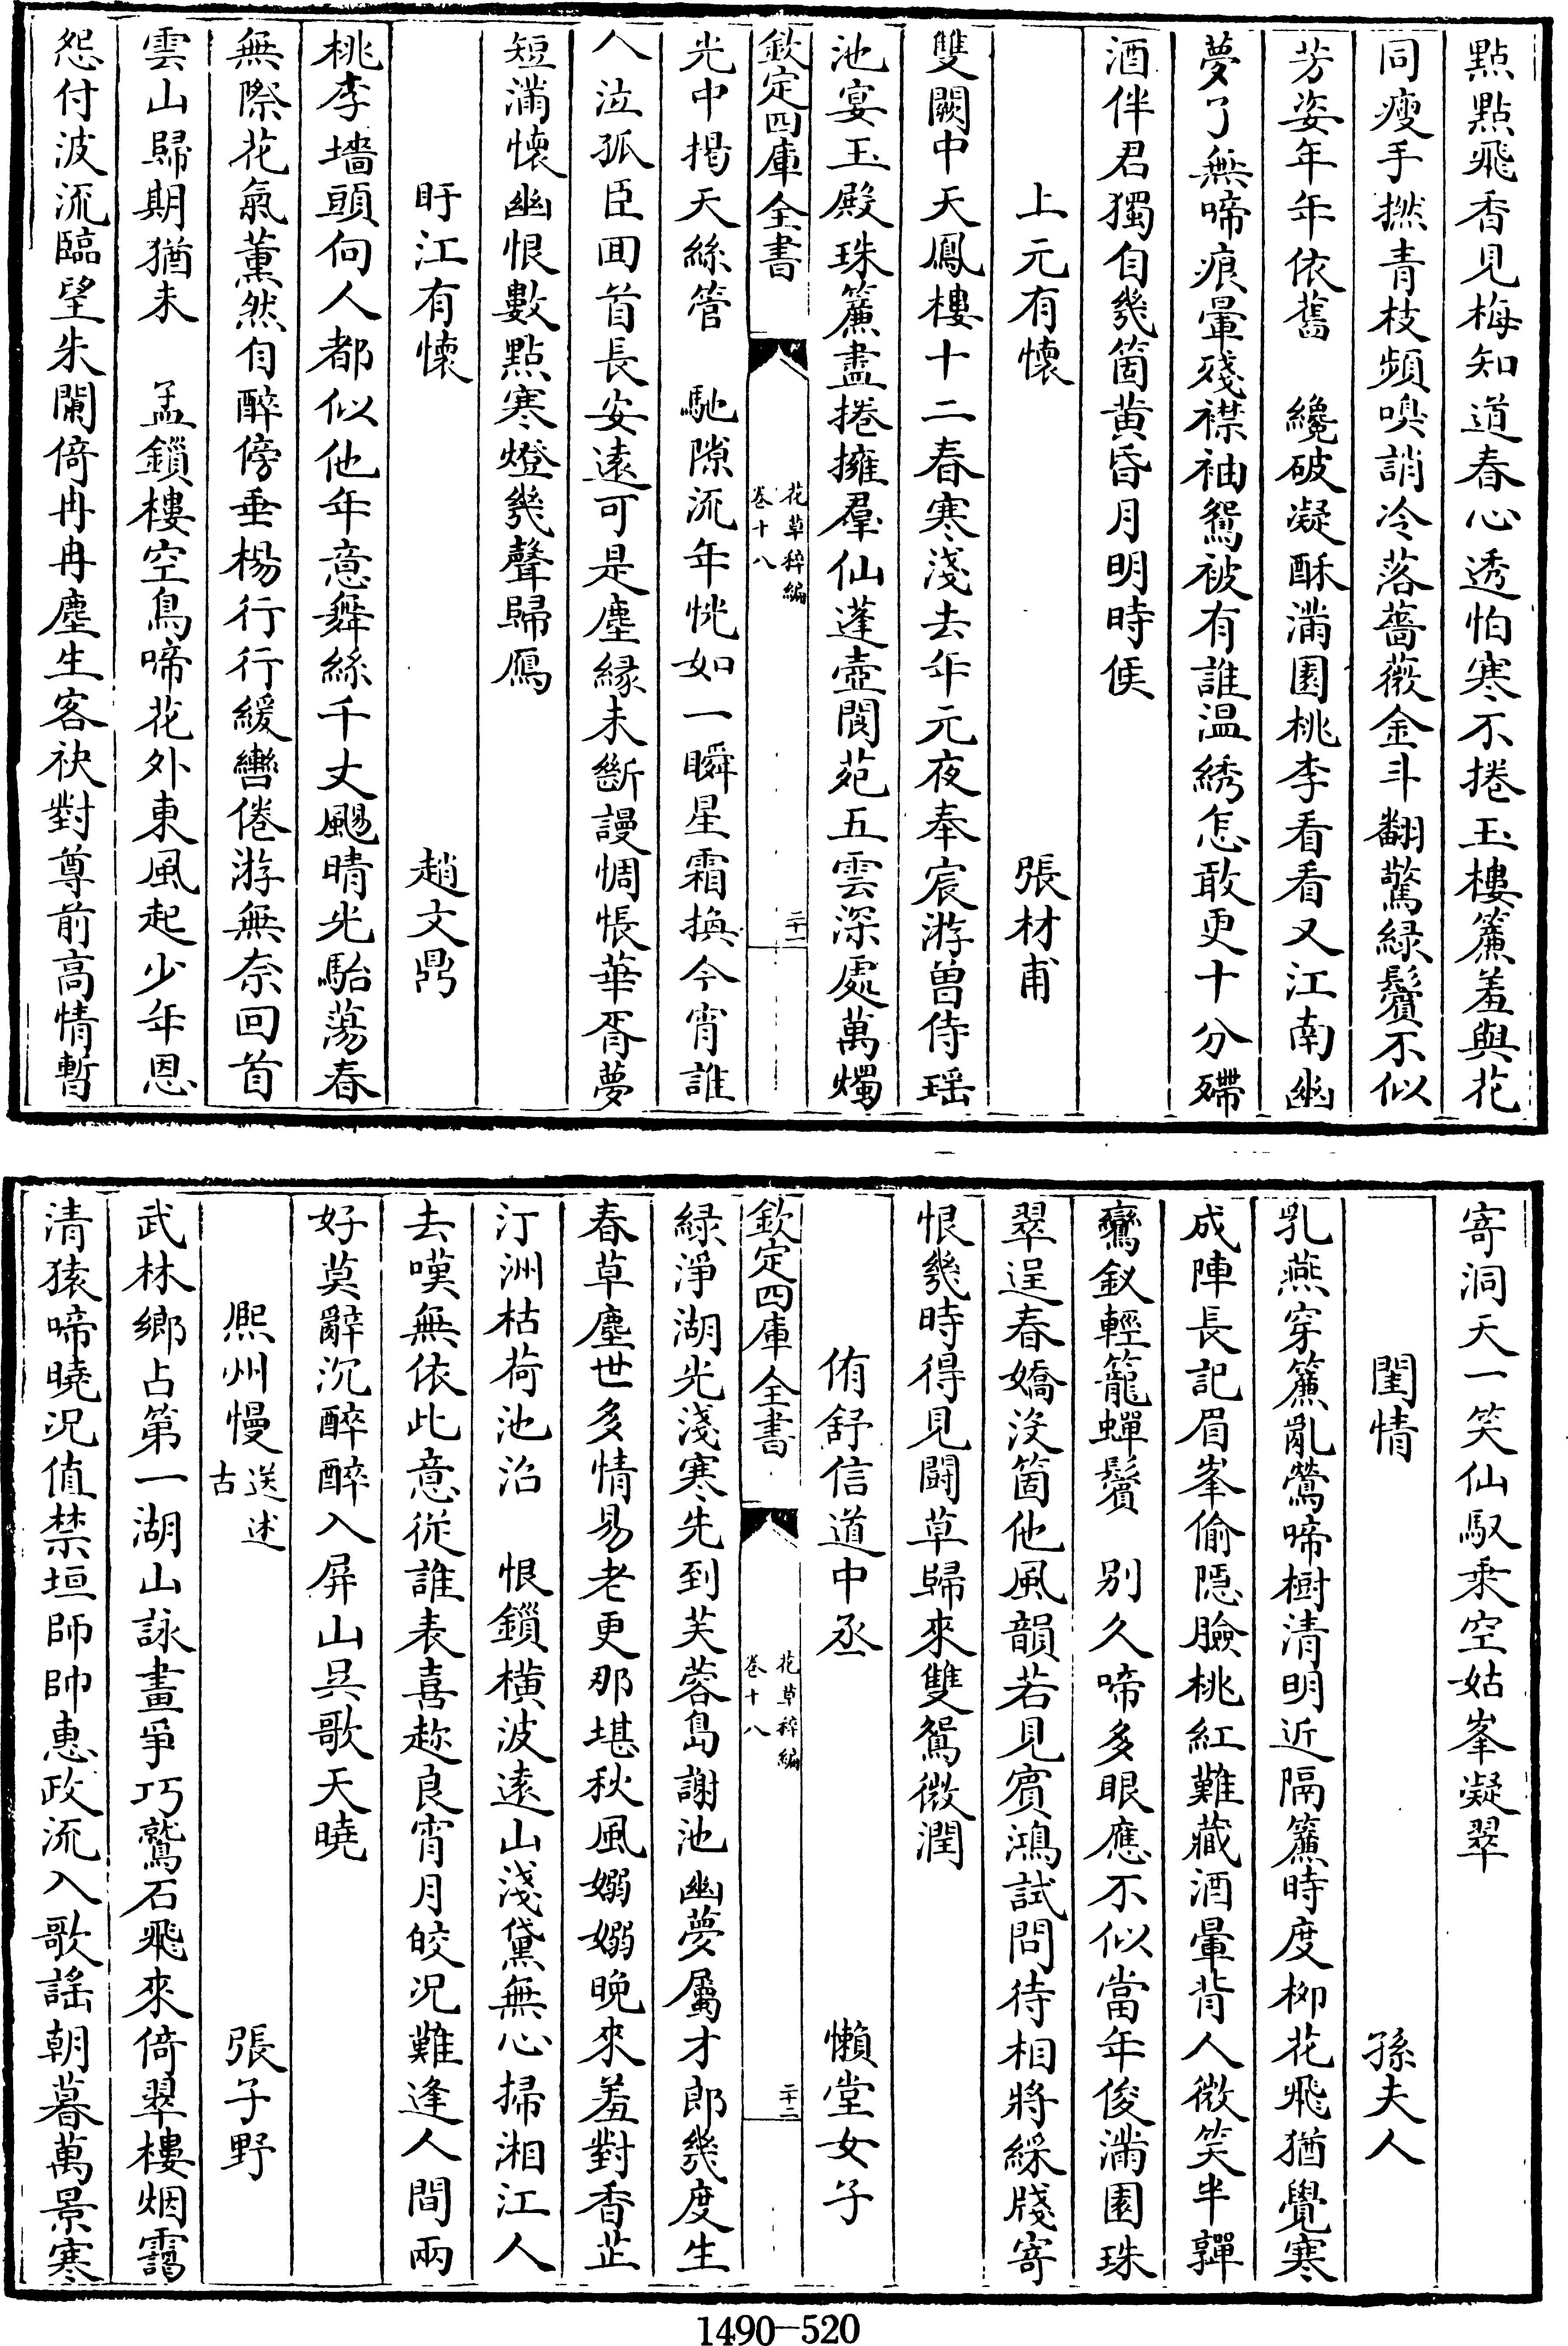 點點飛香見梅知道春心透怕寒不捲玉樓簾羞與花
同瘦手撚青枝頻嗅誚冷落薔薇金斗翻驚緑鬢不似
芳姿年年依舊　纔破凝酥滿園桃李看看又江南幽
夢了無啼痕暈殘襟袖鴛被有誰温綉怎敢更十分殢
酒伴君獨自幾箇黄昏月明時候
上元有懷　張材甫
雙闕中天鳳樓十二春寒淺去年元夜奉宸游曽侍瑶
池宴玉殿珠簾盡捲擁羣仙蓬壺閬苑五雲深處萬燭
欽定四庫全書　花草稡編　卷十八　二十一
光中掲天絲管　馳隙流年恍如一瞬星霜換今宵誰
人泣孤臣回首長安遠可是塵縁未斷謾惆悵華胥夢
短滿懷幽恨數點寒燈幾聲歸鴈
盱江有懷　趙文鼎
桃李墻頭向人都似他年意舞絲千丈颺晴光駘蕩春
無際花氣薫然自醉傍垂楊行行緩轡倦游無奈回首
雲山歸期猶未　孟鎖樓空鳥啼花外東風起少年恩
怨付波流臨望朱闌倚冉冉塵生客袂對尊前高情暫
寄洞天一笑仙馭乘空姑峯凝翠
閨情　孫夫人
乳燕穿簾亂鶯啼樹清明近隔簾時度柳花飛猶覺寒
成陣長記眉峯偷隠臉桃紅難藏酒暈背人微笑半嚲
鸞釵輕籠蟬鬢　别久啼多眼應不似當年俊滿園珠
翠逞春嬌沒箇他風韻若見賓鴻試問待相將綵牋寄
恨幾時得見鬪草歸來雙鴛微潤
侑舒信道中丞　懶堂女子
欽定四庫全書　花草稡編　卷十八　二十二
緑淨湖光淺寒先到芙蓉島謝池幽夢屬才郎幾度生
春草塵世多情易老更那堪秋風嫋嫋晚來羞對香芷
汀洲枯荷池沼　恨鎖横波遠山淺黛無心掃湘江人
去嘆無依此意從誰表喜趂良宵月皎況難逢人間兩
好莫辭沉醉醉入屏山只歌天曉
熈州慢送述古　張子野
武林鄉占第一湖山詠畫爭巧鷲石飛來倚翠樓烟靄
清猿啼曉況值禁垣師帥惠政流入歌謡朝暮萬景寒
1490—520